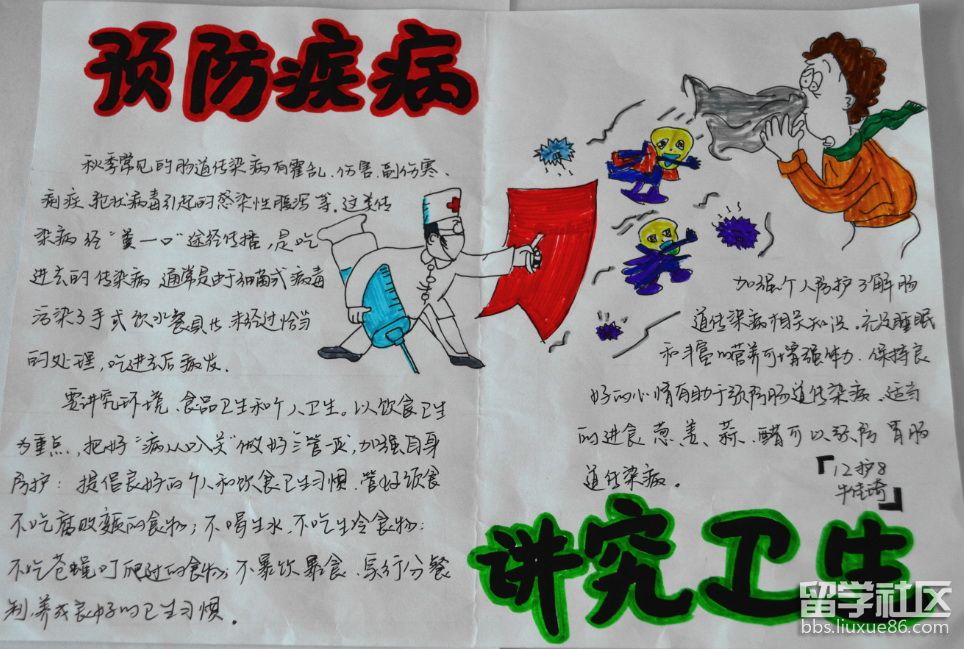 预防疾病
秋季常见的肠道传染病有霍乱、伤寒、副伤寒、
痢疾、轮状病毒引起的感染性腹泻等。这类传
染病经“粪—口”途径传播，是吃
进去的传染病，通常是由于细菌或病毒
污染了手或饮水餐具 未经过恰当
的处理，吃进去后病发。
要讲究环境、食品卫生和个人卫生。以饮食卫生
为重点，把好“病从口入关”做好三管一灭，加强自身
防护：提倡良好的个人和饮食卫生习惯，管好饮食
不吃腐败变质的食物；不喝生水，不吃生冷食物；
不吃苍蝇叮爬过的食物；不暴饮暴食，实行分餐
制，养成良好的卫生习惯。
加强个人防护了解肠
道传染病相关知识。充足睡眠
和丰富的营养可增强体力，保持良
好的心情有助于预防肠道传染病。适当
的进食葱、姜、蒜、醋可以预防胃肠
道传染病。
「12护8
牛佳琦」
讲究卫生
留学社区
bbs.liuxue86.com